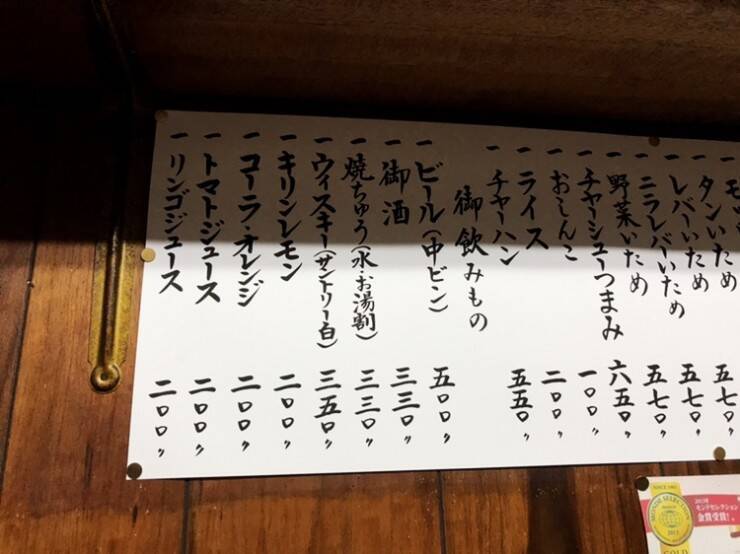 一 タンいため
一 レバーいため 五七〇
一 ニラレバーいため 五七〇〃
一 野菜いため 五七〇〃
一 チャーシューつまみ 六五〇〃
一 おしんこ 一〇〇〃
一 ライス 二〇〇〃
一 チャーハン 五五〇〃
御飲みもの
一 ビール(中ビン) 五〇〇〃
一 御酒 三三〇〃
一 焼ちゅう(水・お湯割) 三三〇〃
一 ウィスキー(サントリー白) 三五〇〃
一 キリンレモン 二〇〇〃
一 コーラ・オレンジ 二〇〇〃
一 トマトジュース 二〇〇〃
一 リンゴジュース 二〇〇〃
モンドセレクション
金賞受賞!